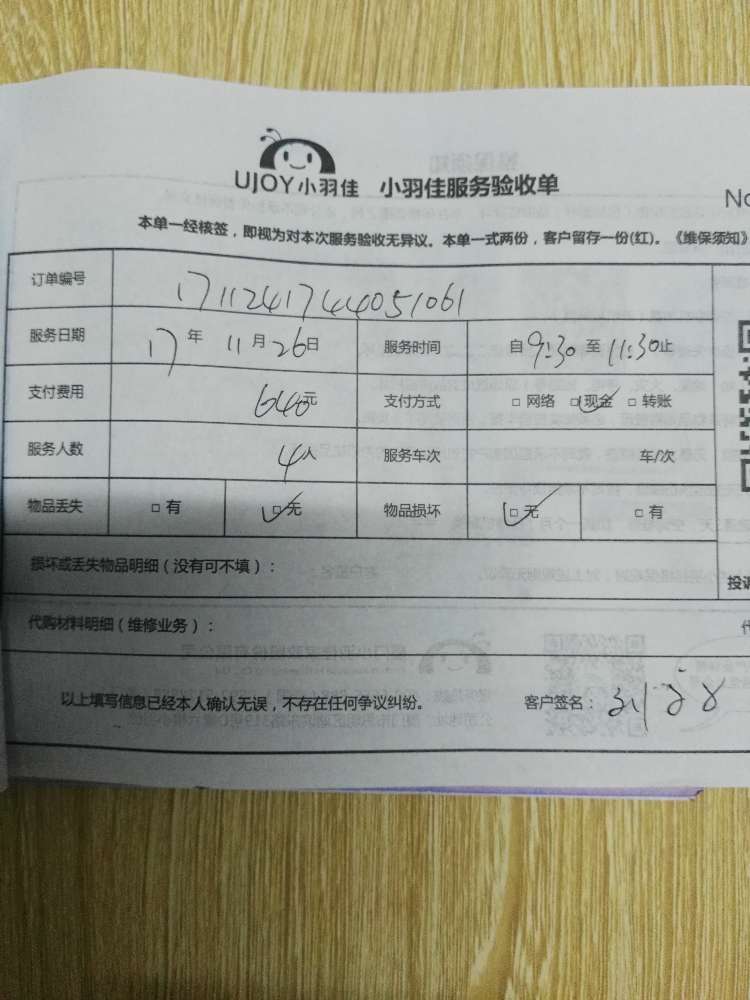 UJOY小羽佳 小羽佳服务验收单
No
本单一经核签，即视为对本次服务验收无异议。本单一式两份，客户留存一份(红)。《维保须知》
订单编号 171124174405​1061
服务日期 17年 11月26日 服务时间 自9:30至11:30止
支付费用 640元 支付方式 □ 网络 □现金 □ 转账
服务人数 4人 服务车次 车/次
物品丢失 □ 有 □无 物品损坏 □无 □ 有
损坏或丢失物品明细（没有可不填）：
投诉
代购材料明细（维修业务）：
以上填写信息已经本人确认无误，不存在任何争议纠纷。 客户签名：